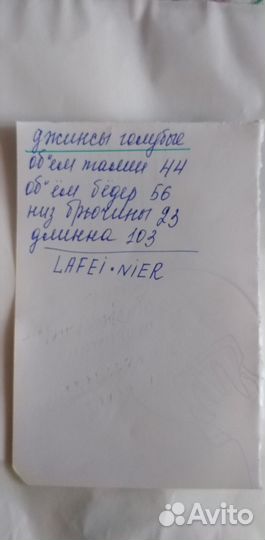 джинсы голубые
об"ем талии 44
об"ём бёдер 56
низ брючины 23
длинна 103
LAFEi·NiER
Avito